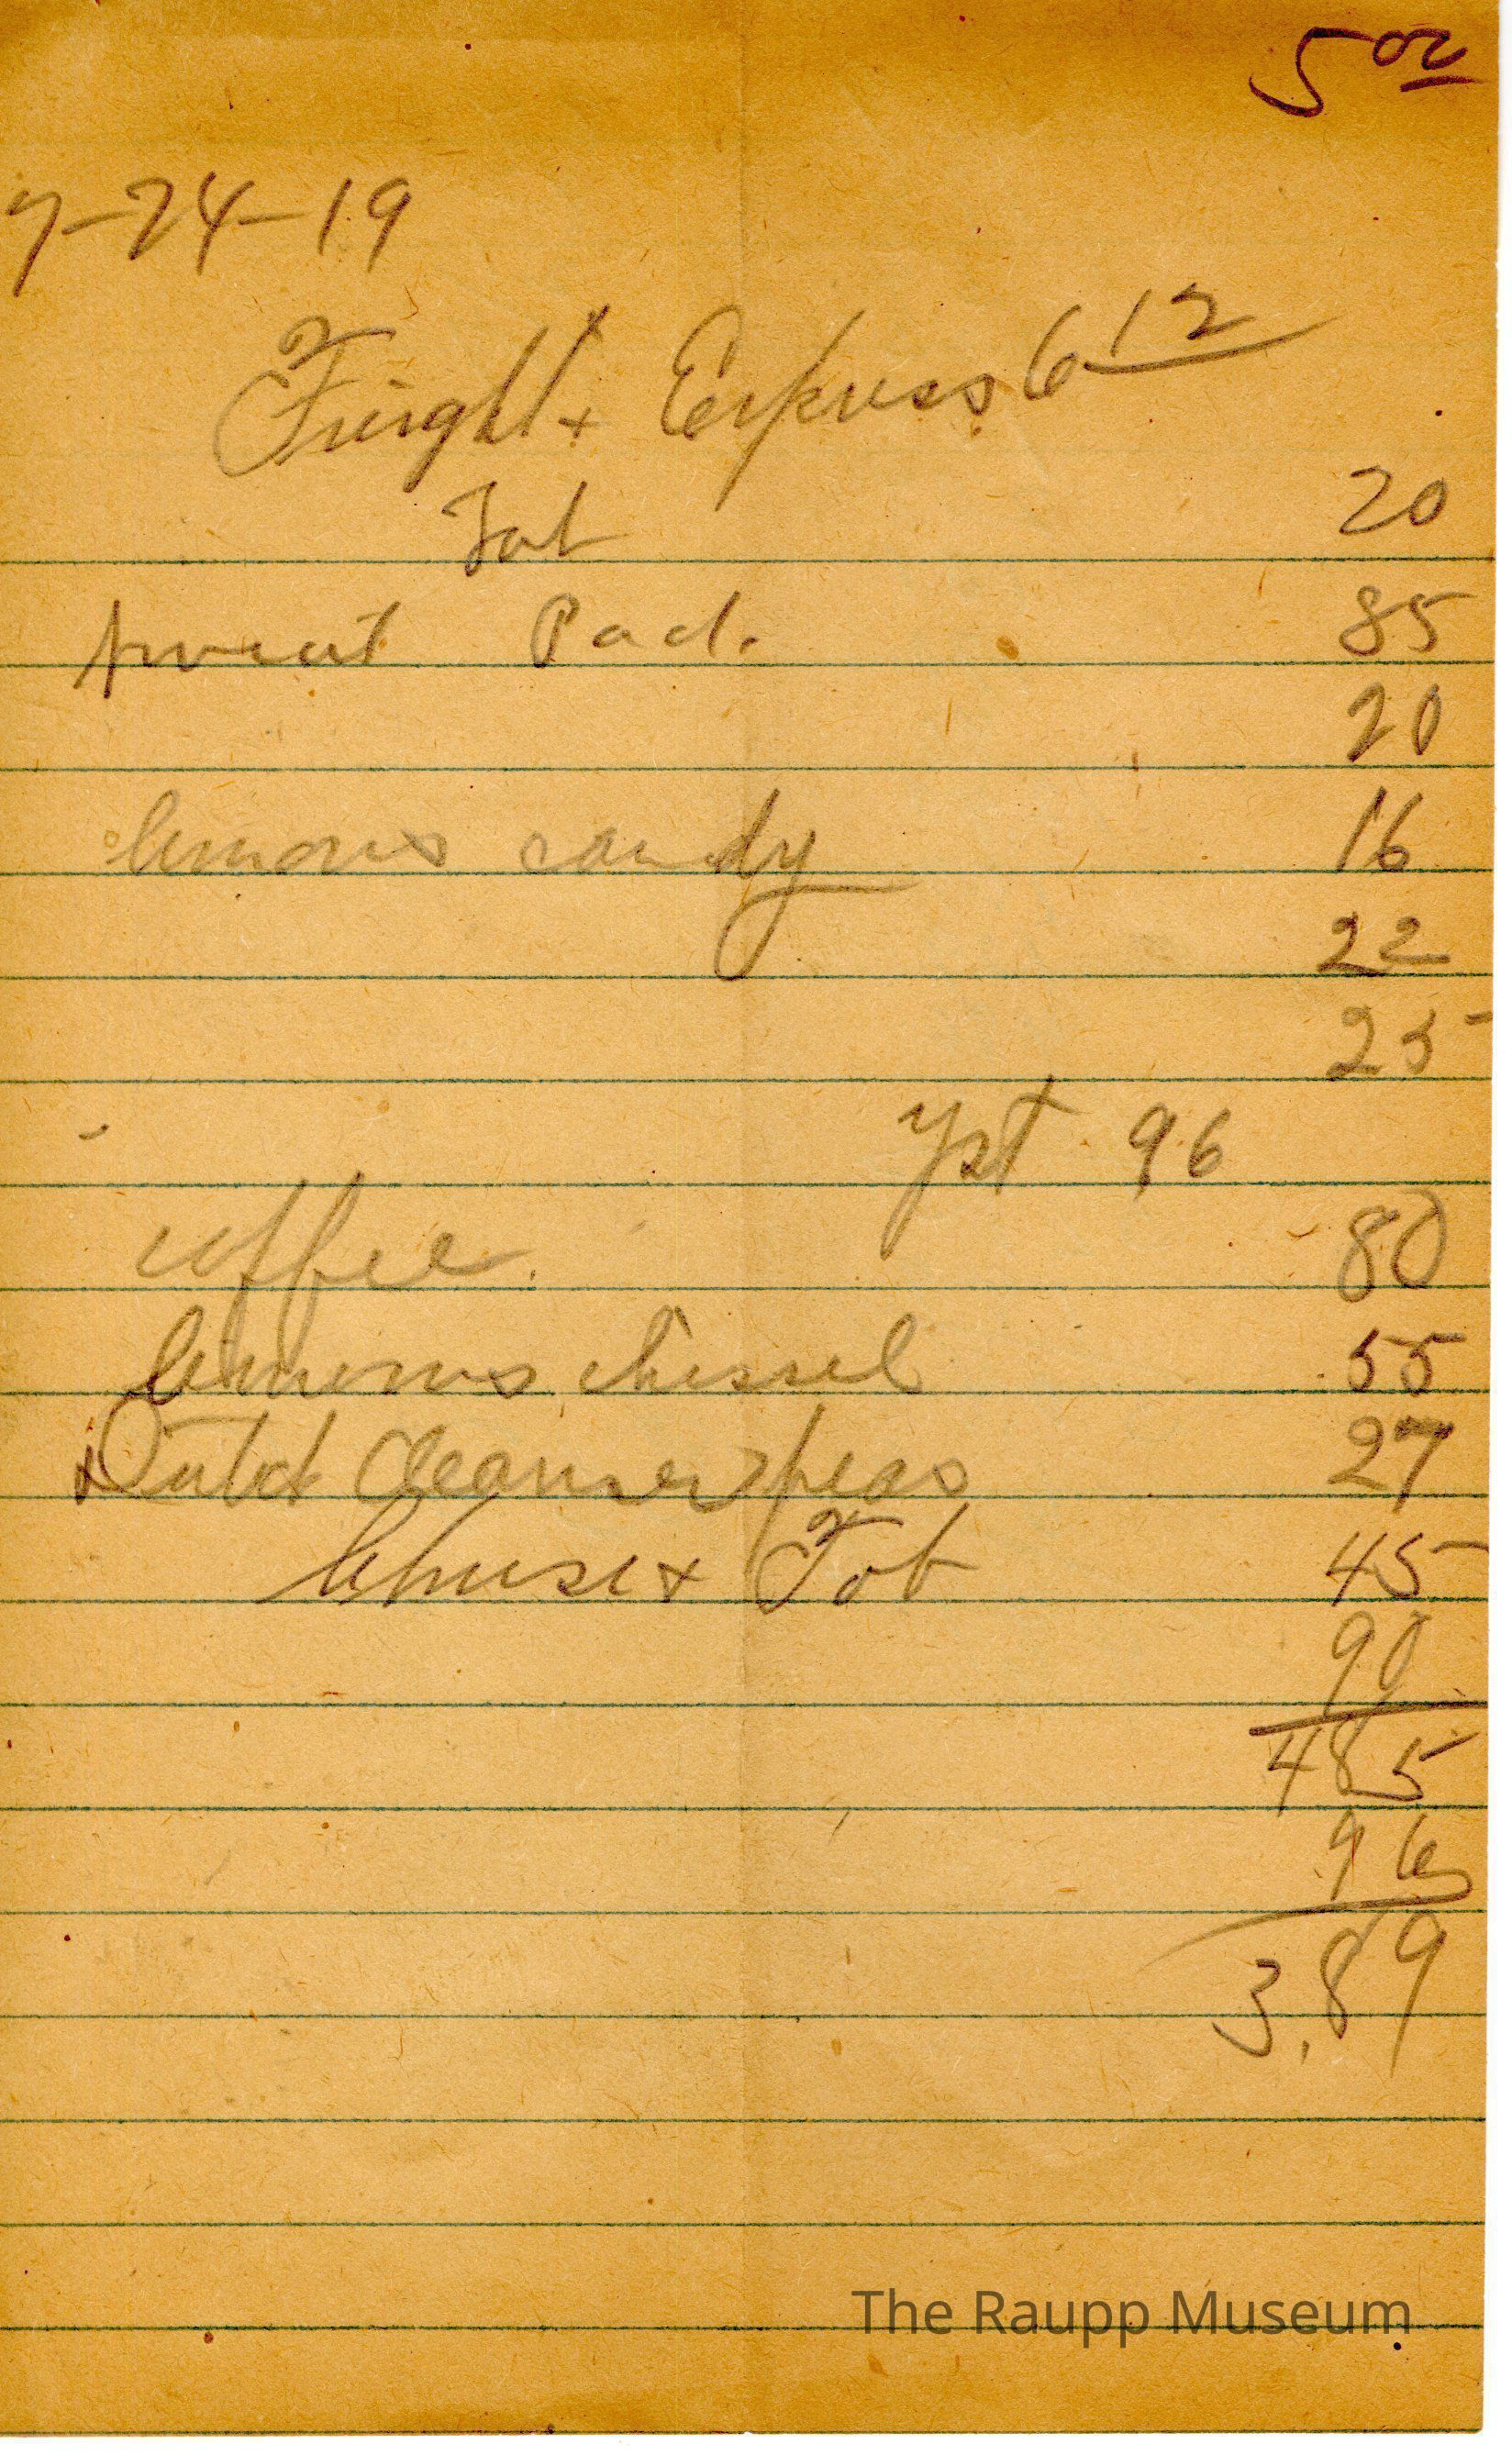 5 00
7-24-19
Freight + Express 6 12
Tob 20
sweat Pad. 85
20
lemons candy 16
22
25
yst 96
coffee. 80
lemons chissel 55
Dutch Cleanser peas 27
Cheese + Tob 45
90
485
96
3.89
The Raupp Museum